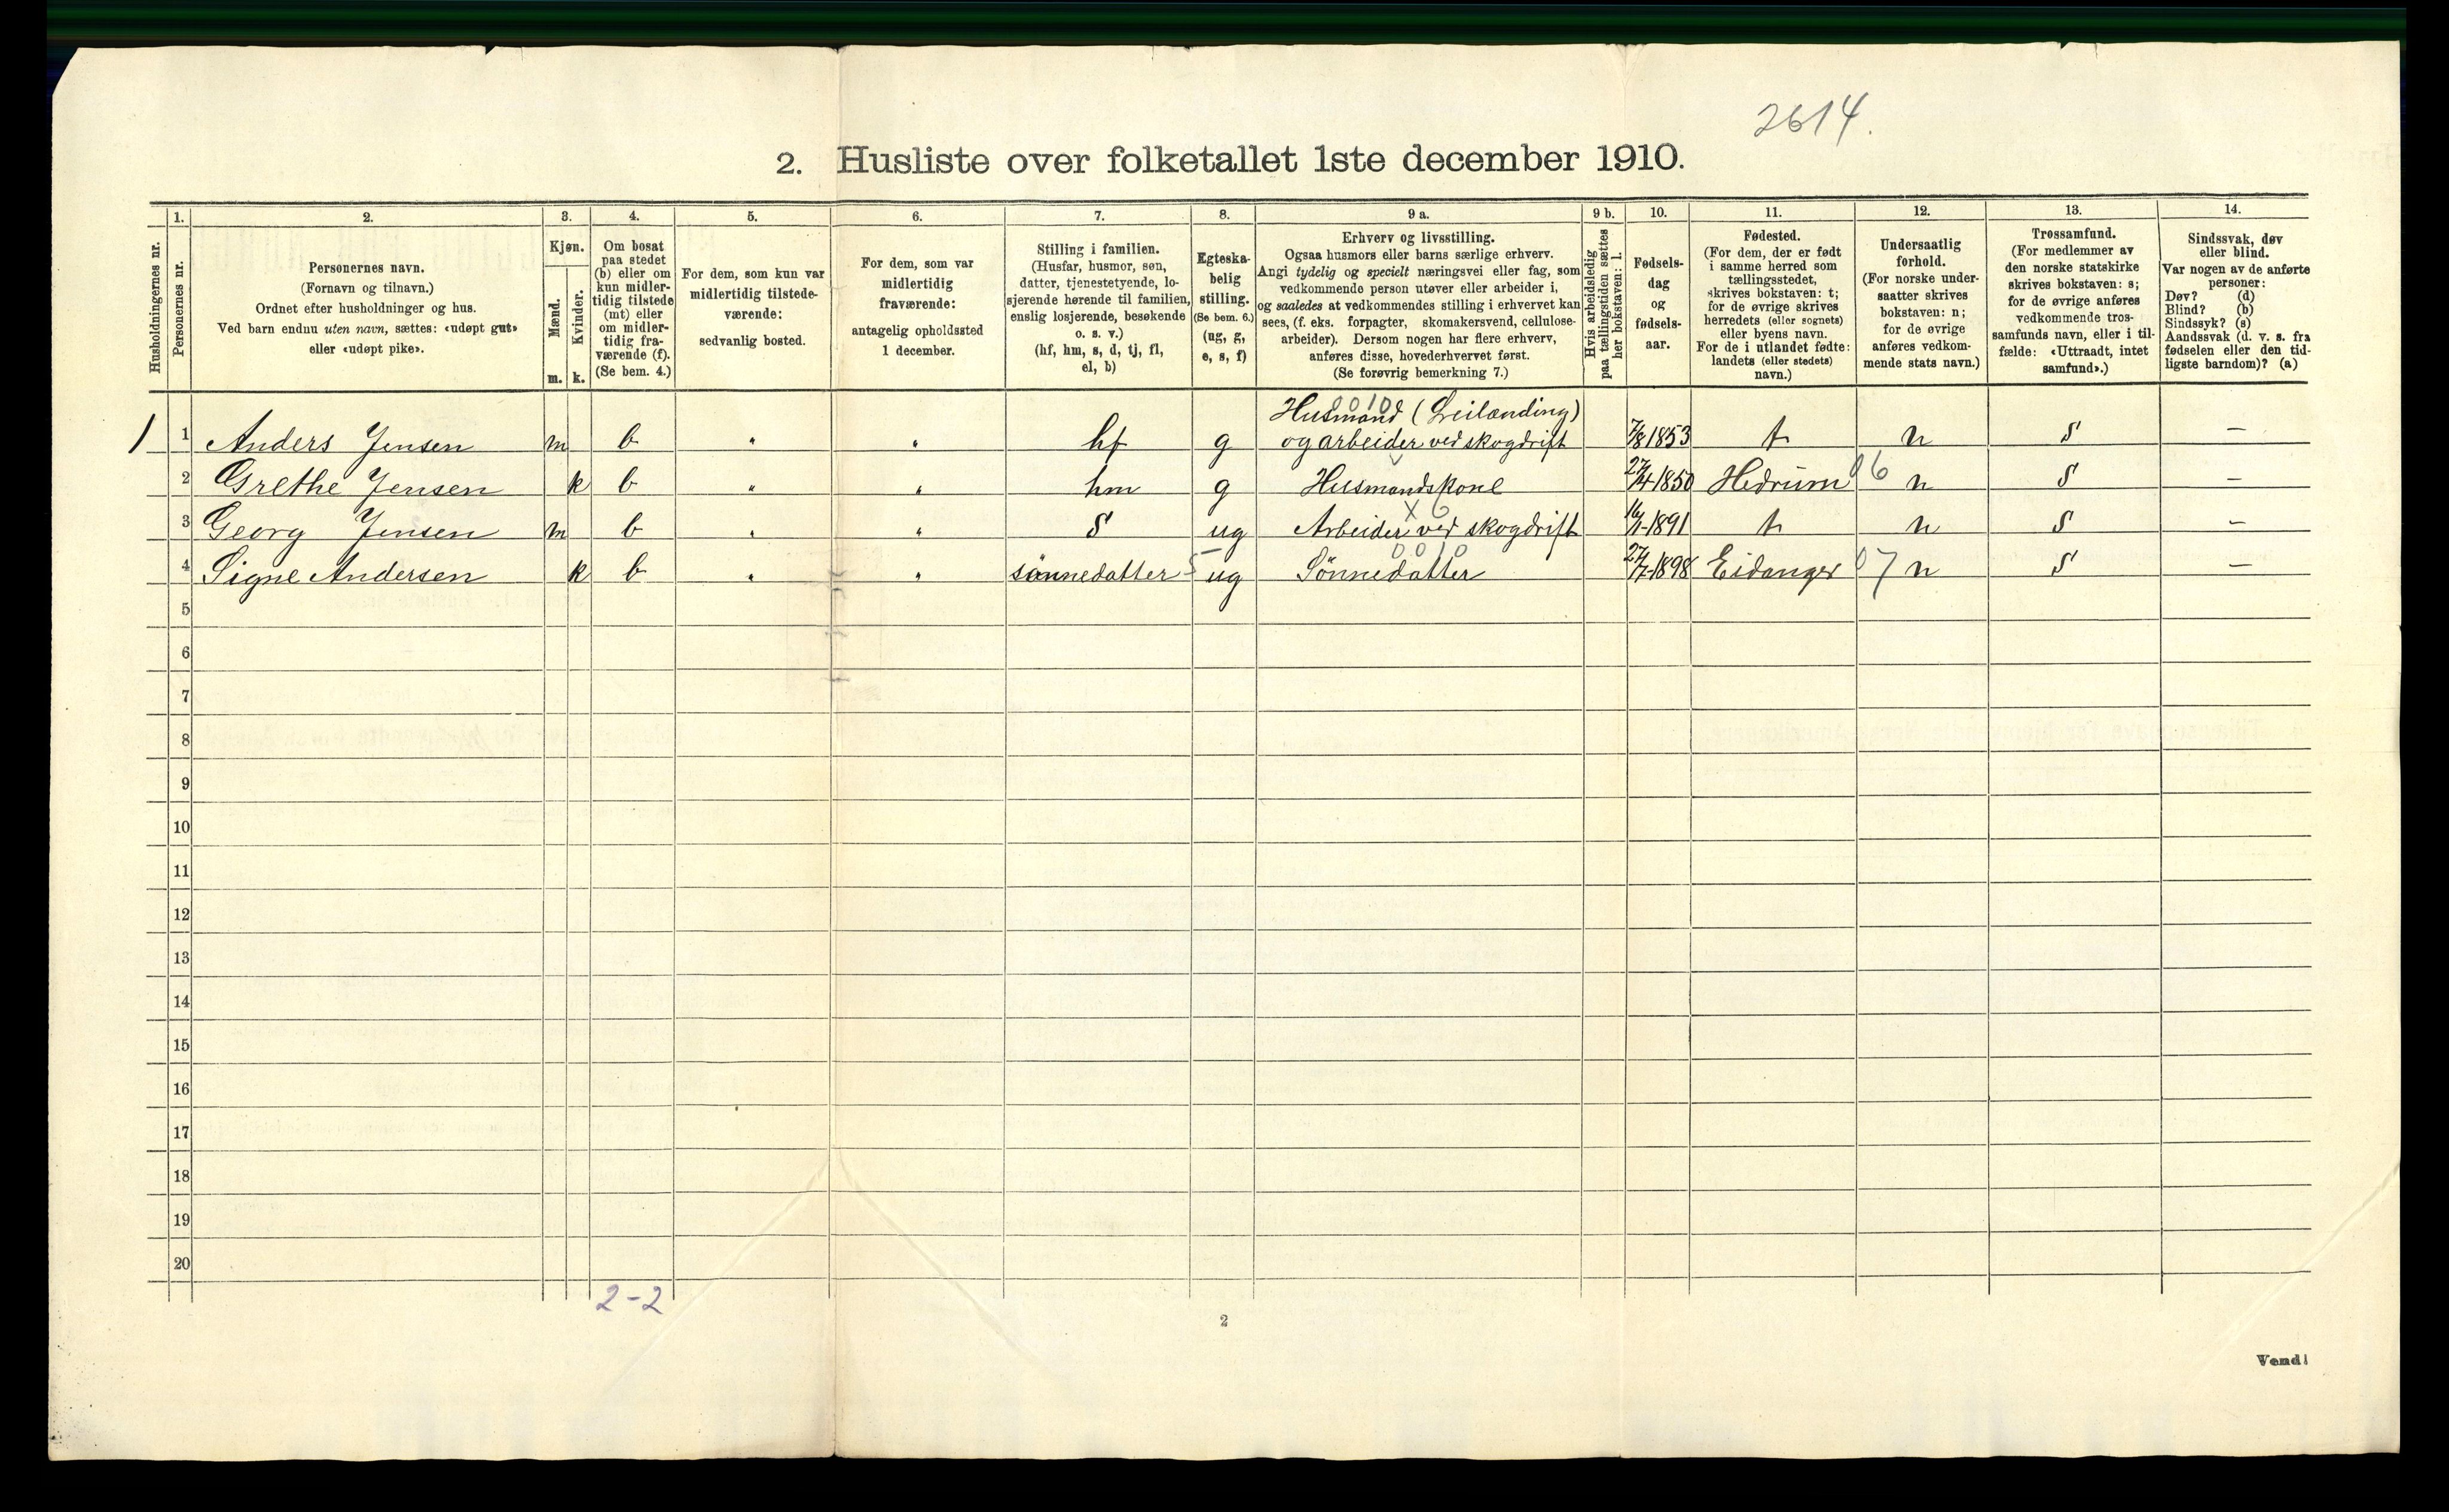 2614.
2. Husliste over folketallet 1ste december 1910.
Husholdningernes nr.
1.
Personernes nr.
2.
Personernes navn.
(Fornavn og tilnavn.)
Ordnet efter husholdninger og hus.
Ved barn endnu uten navn, sættes: «udøpt gut»
eller «udøpt pike».
3.
Kjøn.
Mænd.
Kvinder.
m. k.
4.
Om bosat
paa stedet
(b) eller om
kun midler-
tidig tilstede
(mt) eller
om midler-
tidig fra-
værende (f).
(Se bem. 4.)
5.
For dem, som kun var
midlertidig tilstede-
værende:
sedvanlig bosted.
6.
For dem, som var
midlertidig
fraværende:
antagelig opholdssted
1 december.
7.
Stilling i familien.
(Husfar, husmor, søn,
datter, tjenestetyende, lo-
sjerende hørende til familien,
enslig losjerende, besøkende
o. s. v.)
(hf, hm, s, d, tj, fl,
el, b)
8.
Egteska-
belig
stilling.
(Se bem. 6.)
(ug, g,
e, s, f)
9 a.
Erhverv og livsstilling.
Ogsaa husmors eller barns særlige erhverv.
Angi tydelig og specielt næringsvei eller fag, som
vedkommende person utøver eller arbeider i,
og saaledes at vedkommendes stilling i erhvervet kan
sees, (f. eks. forpagter, skomakersvend, cellulose-
arbeider). Dersom nogen har flere erhverv,
anføres disse, hovederhvervet først.
(Se forøvrig bemerkning 7.)
9 b.
Hvis arbeidsledig
paa tællingstiden sættes
her bokstaven: l.
10.
Fødsels-
dag
og
fødsels-
aar.
11.
Fødested.
(For dem, der er født
i samme herred som
tællingsstedet,
skrives bokstaven: t;
for de øvrige skrives
herredets (eller sognets)
eller byens navn.
For de i utlandet fødte:
landets (eller stedets)
navn.)
12.
Undersaatlig
forhold.
(For norske under-
saatter skrives
bokstaven: n;
for de øvrige
anføres vedkom-
mende stats navn.)
13.
Trossamfund.
(For medlemmer av
den norske statskirke
skrives bokstaven: s;
for de øvrige anføres
vedkommende tros-
samfunds navn, eller i til-
fælde: «Uttraadt, intet
samfund».)
14.
Sindssvak, døv
eller blind.
Var nogen av de anførte
personer:
Døv? (d)
Blind? (b)
Sindssyk? (s)
Aandssvak (d. v. s. fra
fødselen eller den tid-
ligste barndom)? (a)
0010
Husmand (Leilænding)
1 1 Anders Jensen m b " " hf g og arbeider ved skogdrift 7/8 1853 t n s –
2 Grethe Jensen k b " " hm g Husmandskone 27/4 1850 Hedrum 06 n s –
X 6
3 Georg Jensen m b " " s ug Arbeider ved skogdrift 16/1-1891 t n s –
0010
4 Signe Andersen k b " " sönnedatter 5 ug Sönnedatter 27/7-1898 Eidanger 07 n s –
5
6
7
8
9
10
11
12
13
14
15
16
17
18
19
20
2-2
2
Vend!